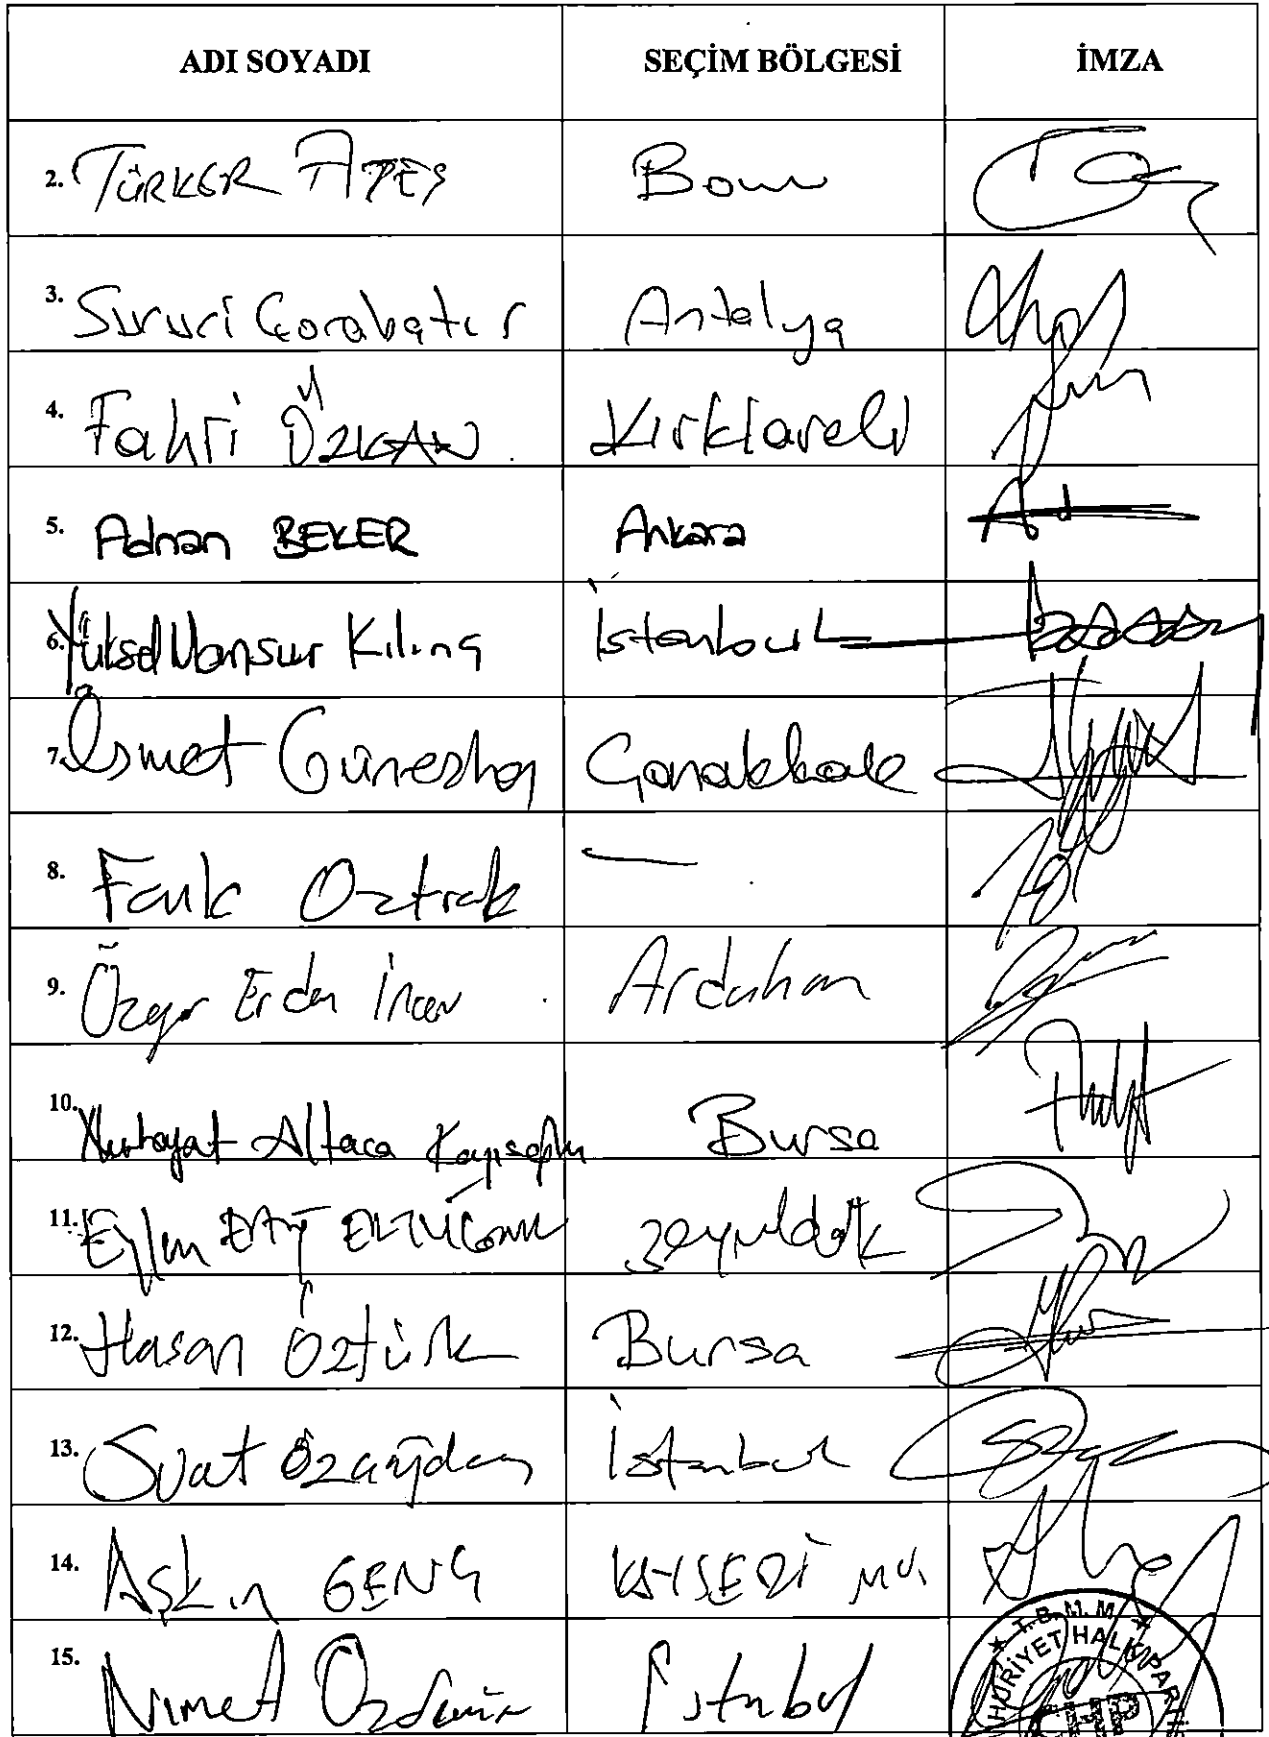 ADI SOYADI SEÇİM BÖLGESİ İMZA
2. TÜRKER ATEŞ Bolu
3. Sururi Çorabatır Antalya
4. Fahri ÖZKAN Kırklareli
5. Adnan BEKER Ankara
6. Yüksel Mansur Kılınç İstanbul
7. İsmet Güneşhan Çanakkale
8. Faik Öztrak —
9. Özgür Erdem İncesu Ardahan
10. Nurhayat Altaca Kayışoğlu Bursa
11. Eylem ERTUĞRUL Zonguldak
12. Hasan Öztürk Bursa
13. Suat Özçağdaş İstanbul
14. Aşkın GENÇ KAYSERİ Mv.
15. Nimet Özdemir İstanbul
T.B.M.M.
HURİYET HALK PARTİ
CHP